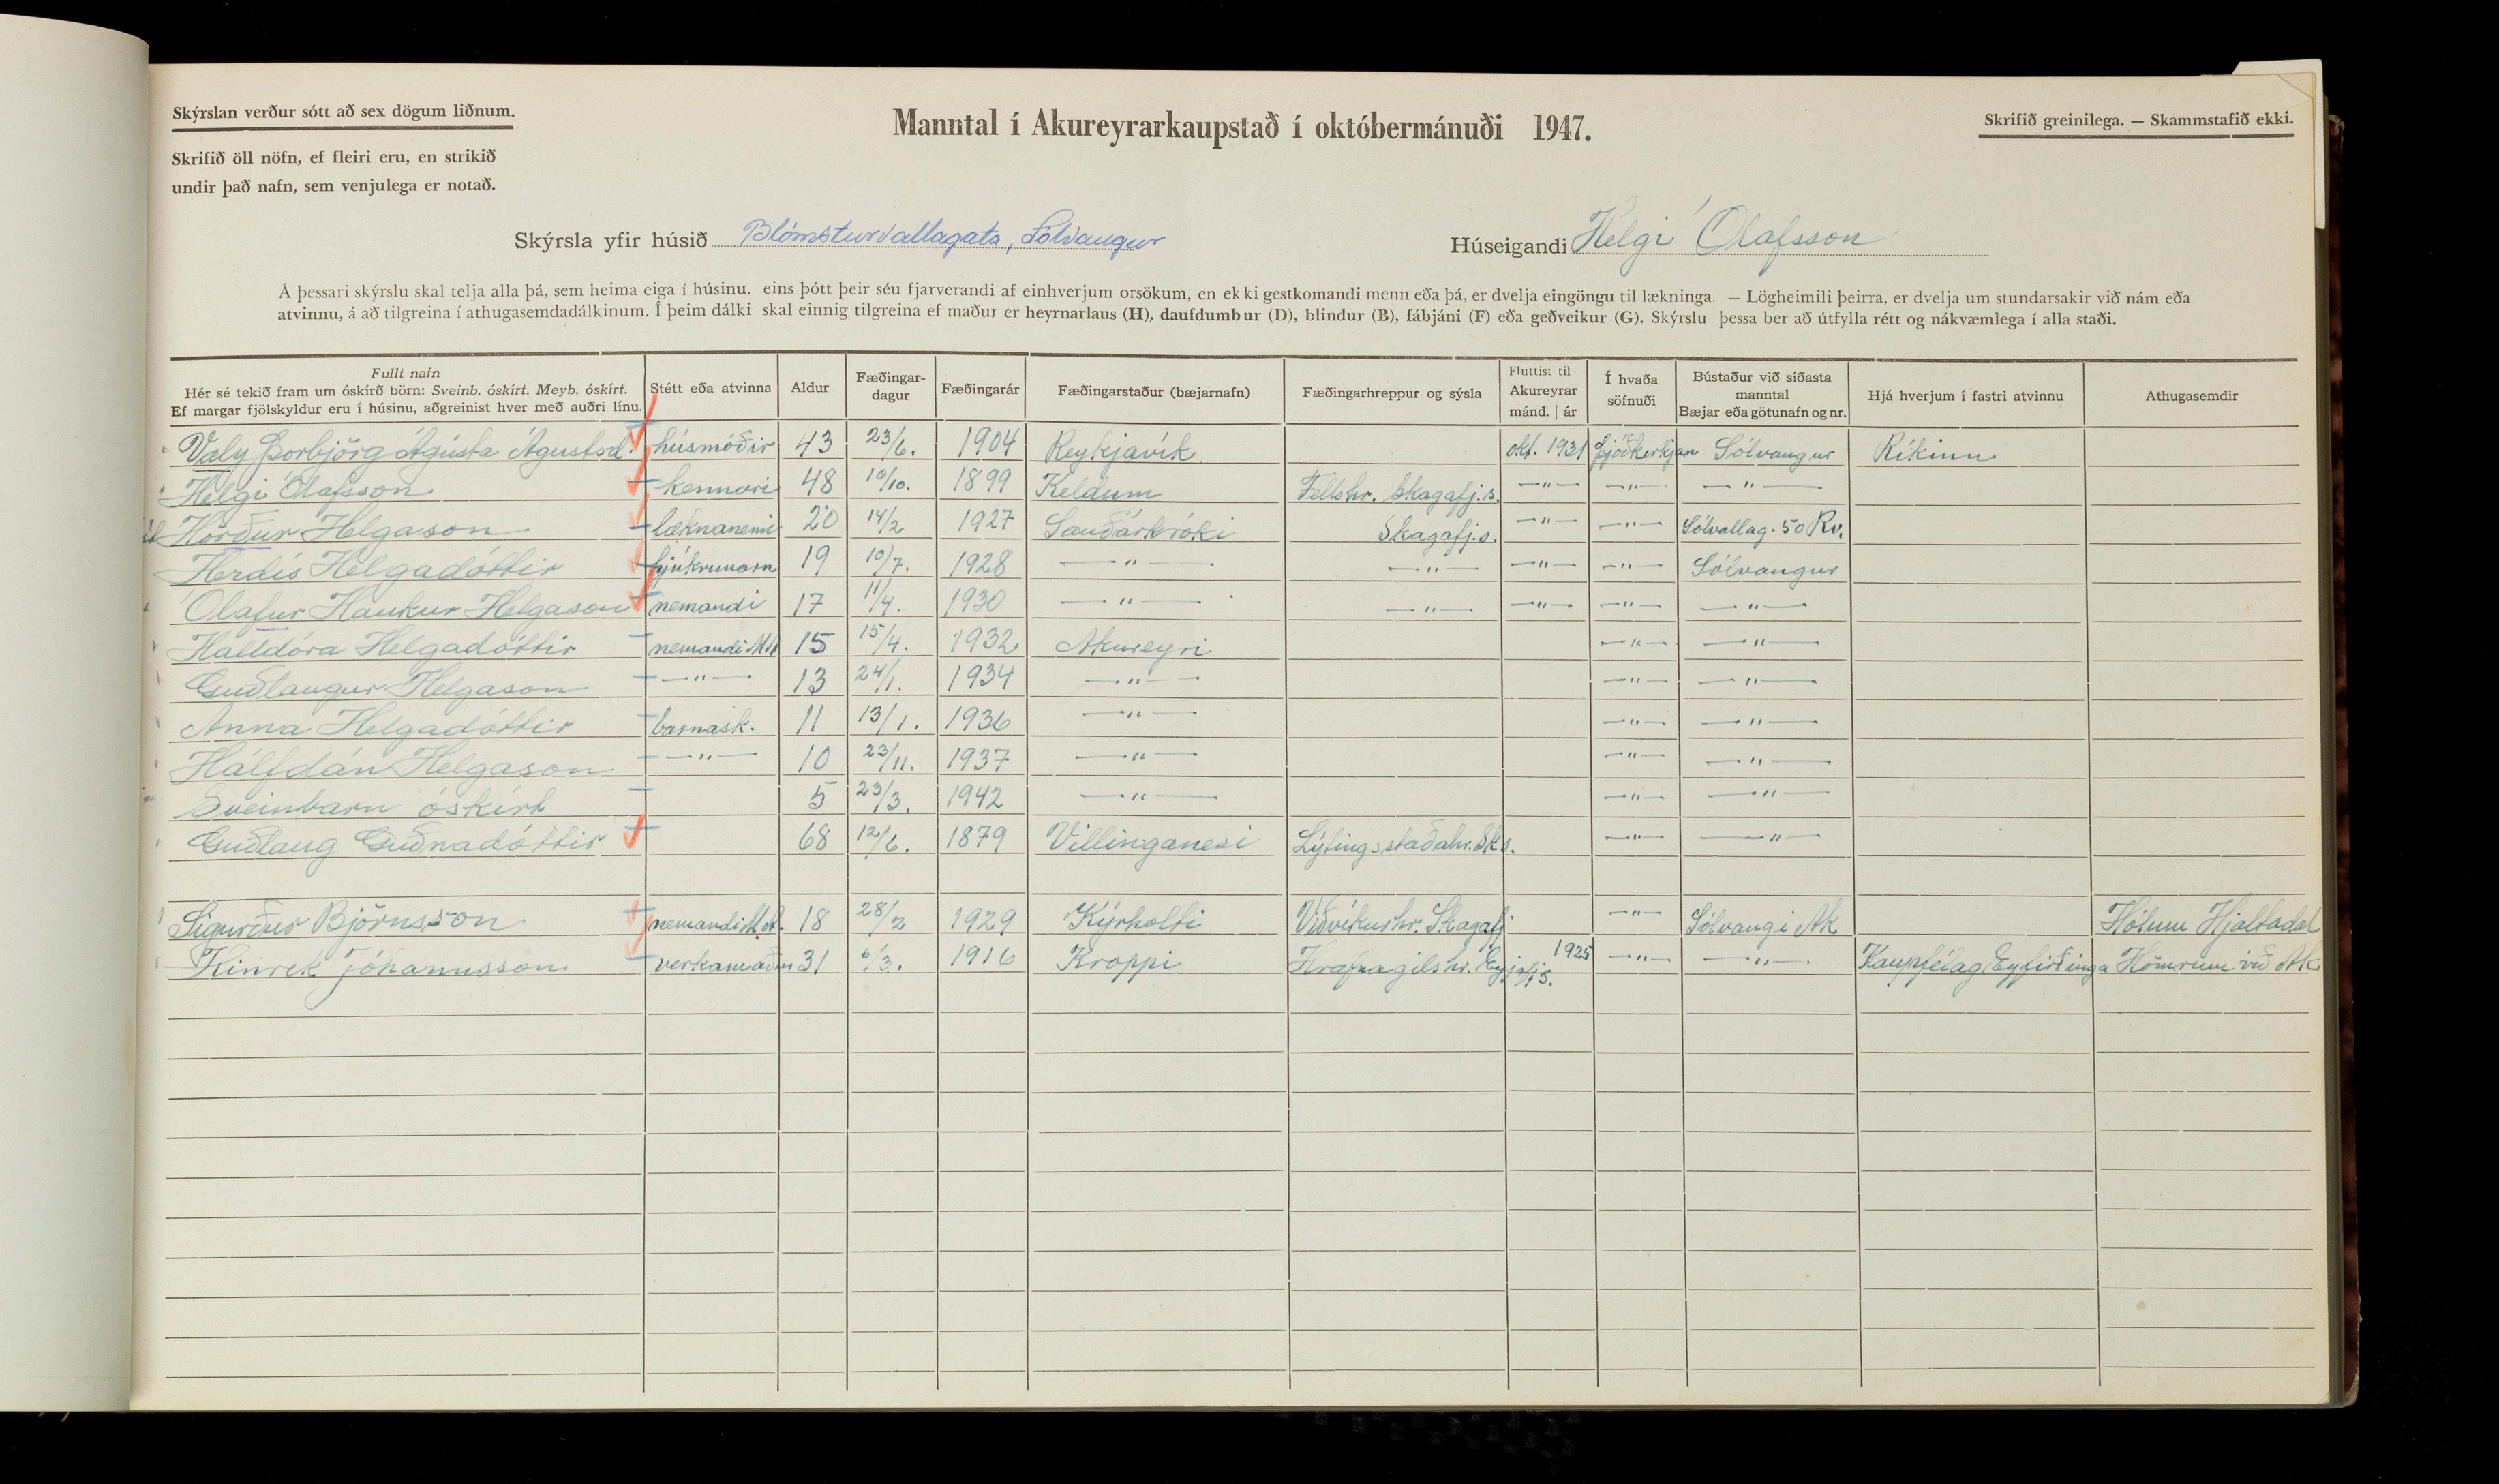 Skýrslan verður sótt að sex dögum liðnum.
Manntal í Akureyrarkaupstað í októbermánuði 1947.
Skrifið greinilega. — Skammstafið ekki.
Skrifið öll nöfn, ef fleiri eru, en strikið
undir það nafn, sem venjulega er notað.
Skýrsla yfir húsið Blómsturvallagata, Sólvangur
Húseigandi Helgi Ólafsson
Á þessari skýrslu skal telja alla þá, sem heima eiga í húsinu, eins þótt þeir séu fjarverandi af einhverjum orsökum, en ekki gestkomandi menn eða þá, er dvelja eingöngu til lækninga. — Lögheimili þeirra, er dvelja um stundarsakir við nám eða
atvinnu, á að tilgreina í athugasemdadálkinum. Í þeim dálki skal einnig tilgreina ef maður er heyrnarlaus (H), daufdumbur (D), blindur (B), fábjáni (F) eða geðveikur (G). Skýrslu þessa ber að útfylla rétt og nákvæmlega í alla staði.
Fullt nafn
Hér sé tekið fram um óskírð börn: Sveinb. óskírt. Meyb. óskírt.
Ef margar fjölskyldur eru í húsinu, aðgreinist hver með auðri línu.
Stétt eða atvinna
Aldur
Fæðingar-
dagur
Fæðingarár
Fæðingarstaður (bæjarnafn)
Fæðingarhreppur og sýsla
Fluttist til
Akureyrar
mánd. | ár
Í hvaða
söfnuði
Bústaður við síðasta
manntal
Bæjar eða götunafn og nr.
Hjá hverjum í fastri atvinnu
Athugasemdir
Valý Þorbjörg Ágústa Ágústsd. húsmóðir 43 23/6. 1904 Reykjavík okt. 1931 þjóðkirkjan Sólvangur Ríkinu
Helgi Ólafsson kennari 48 10/10. 1899 Keldum Fellshr. Skagafj.s. —"— —"— —"—
Hörður Helgason læknanemi 20 14/2 1927 Sauðárkróki Skagafj.s. —"— —"— Sólvallag. 50 Rv.
Herdís Helgadóttir 19 10/7. 1928 —"— —"— —"— —"— Sólvangur
Ólafur Haukur Helgason nemandi 17 11/4. 1930 —"— —"— —"— —"— —"—
Halldóra Helgadóttir nemandi MA 15 15/4. 1932 Akureyri —"— —"—
Guðlaugur Helgason —"— 13 24/1. 1934 —"— —"— —"—
Anna Helgadóttir barnask. 11 13/1. 1936 —"— —"— —"—
Hálfdán Helgason —"— 10 23/11. 1937 —"— —"— —"—
Sveinbarn óskírt 5 23/3. 1942 —"— —"— —"—
Guðlaug Guðnadóttir 68 12/6. 1879 Villinganesi Lýtingsstaðahr. Sk.s. —"— —"—
Sigurður Björnsson nemandi M.A. 18 28/2 1929 Kýrholti Viðvíkurhr. Skagafj. —"— Sólvangi Ak Hólum Hjaltadal
Hinrek Jóhannsson verkamaður 31 6/3. 1916 Kroppi Hrafnagilshr. Eyjafj.s. 1925 —"— —"— Kaupfélag Eyfirðinga Hömrum við Ak.